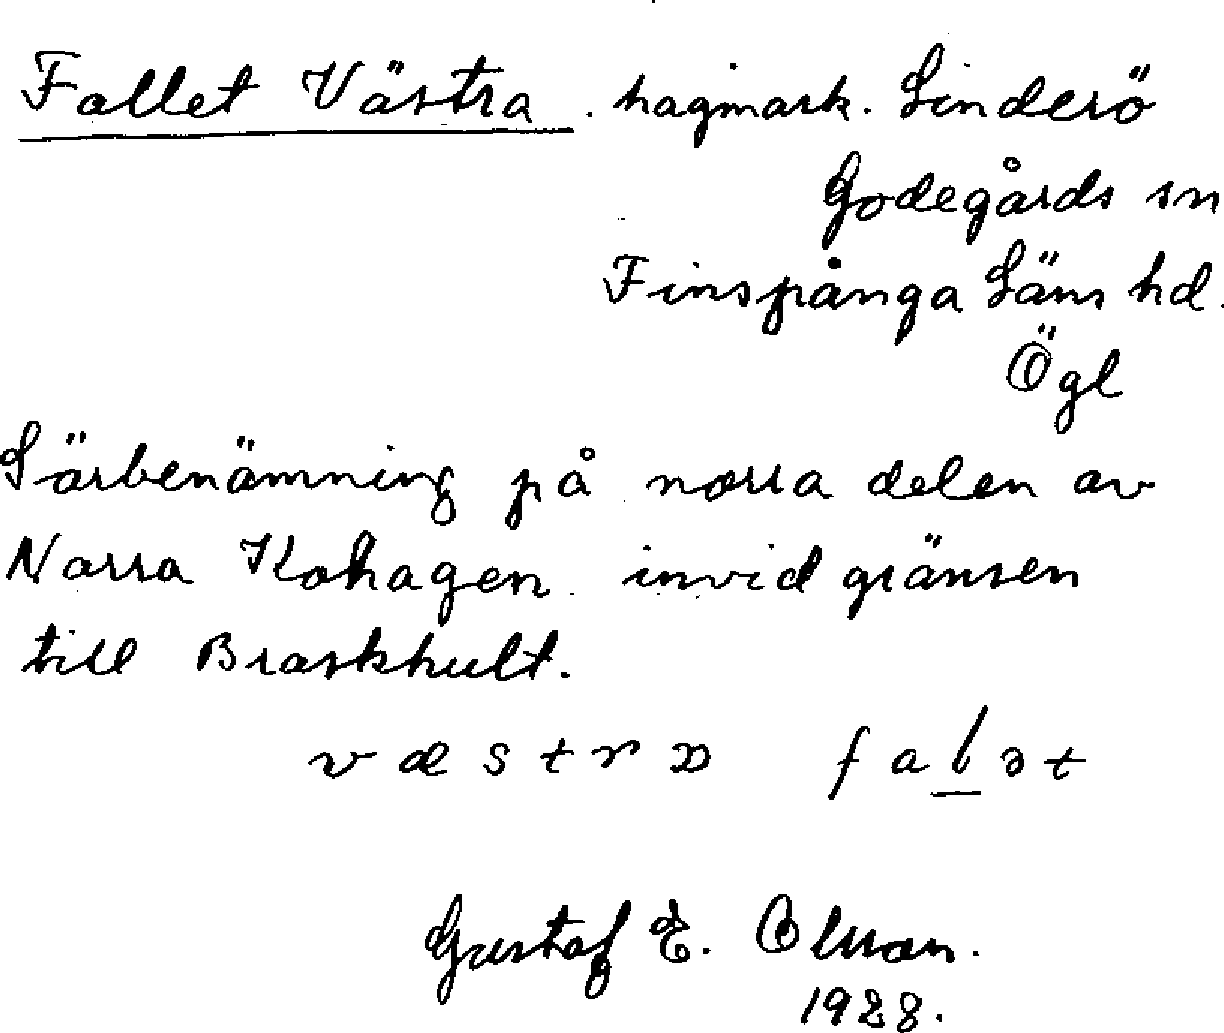 Fallet Västra. hagmark. Linderö
Godegårds sn
Finspånga Läns hd.
Ögl
Särbenämning på norra delen av
Norra Kohagen invid gränsen
till Braskhult.
væstra falət
Gustaf E. Olsson.
1928.